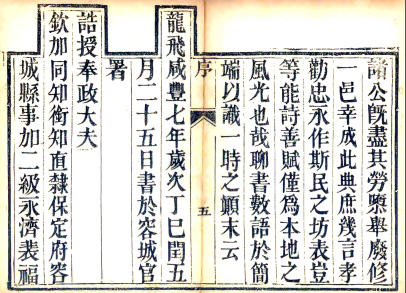 諸公旣盡其勞縻舉廢修
一邑幸成此典庶幾言孝
勸忠永作斯民之坊表豈
等能詩善賦僅爲本地之
風光也哉聊書數語於簡
端以識一時之顛末云
序 五
龍飛咸豐七年歲次丁巳閏五
月二十五日書於容城官
署
誥授奉政大夫
欽加同知銜知直隸保定府容
城縣事加二級永濟裴福